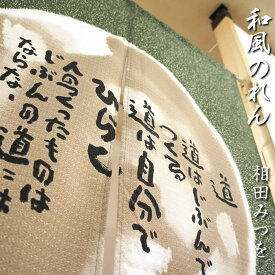 和風のれん 相田みつを
道
道はじぶんで
つくる
道は自分で
ひらく
人のつくったものは
じぶんの道には
ならない